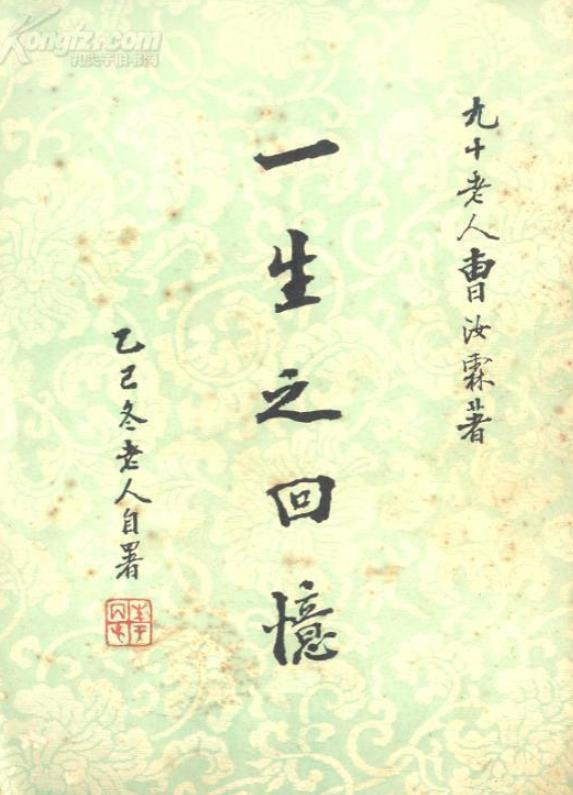 Kongfz.com
孔夫子旧书网
九十老人曹汝霖著
一生之回憶
乙巳冬老人自署